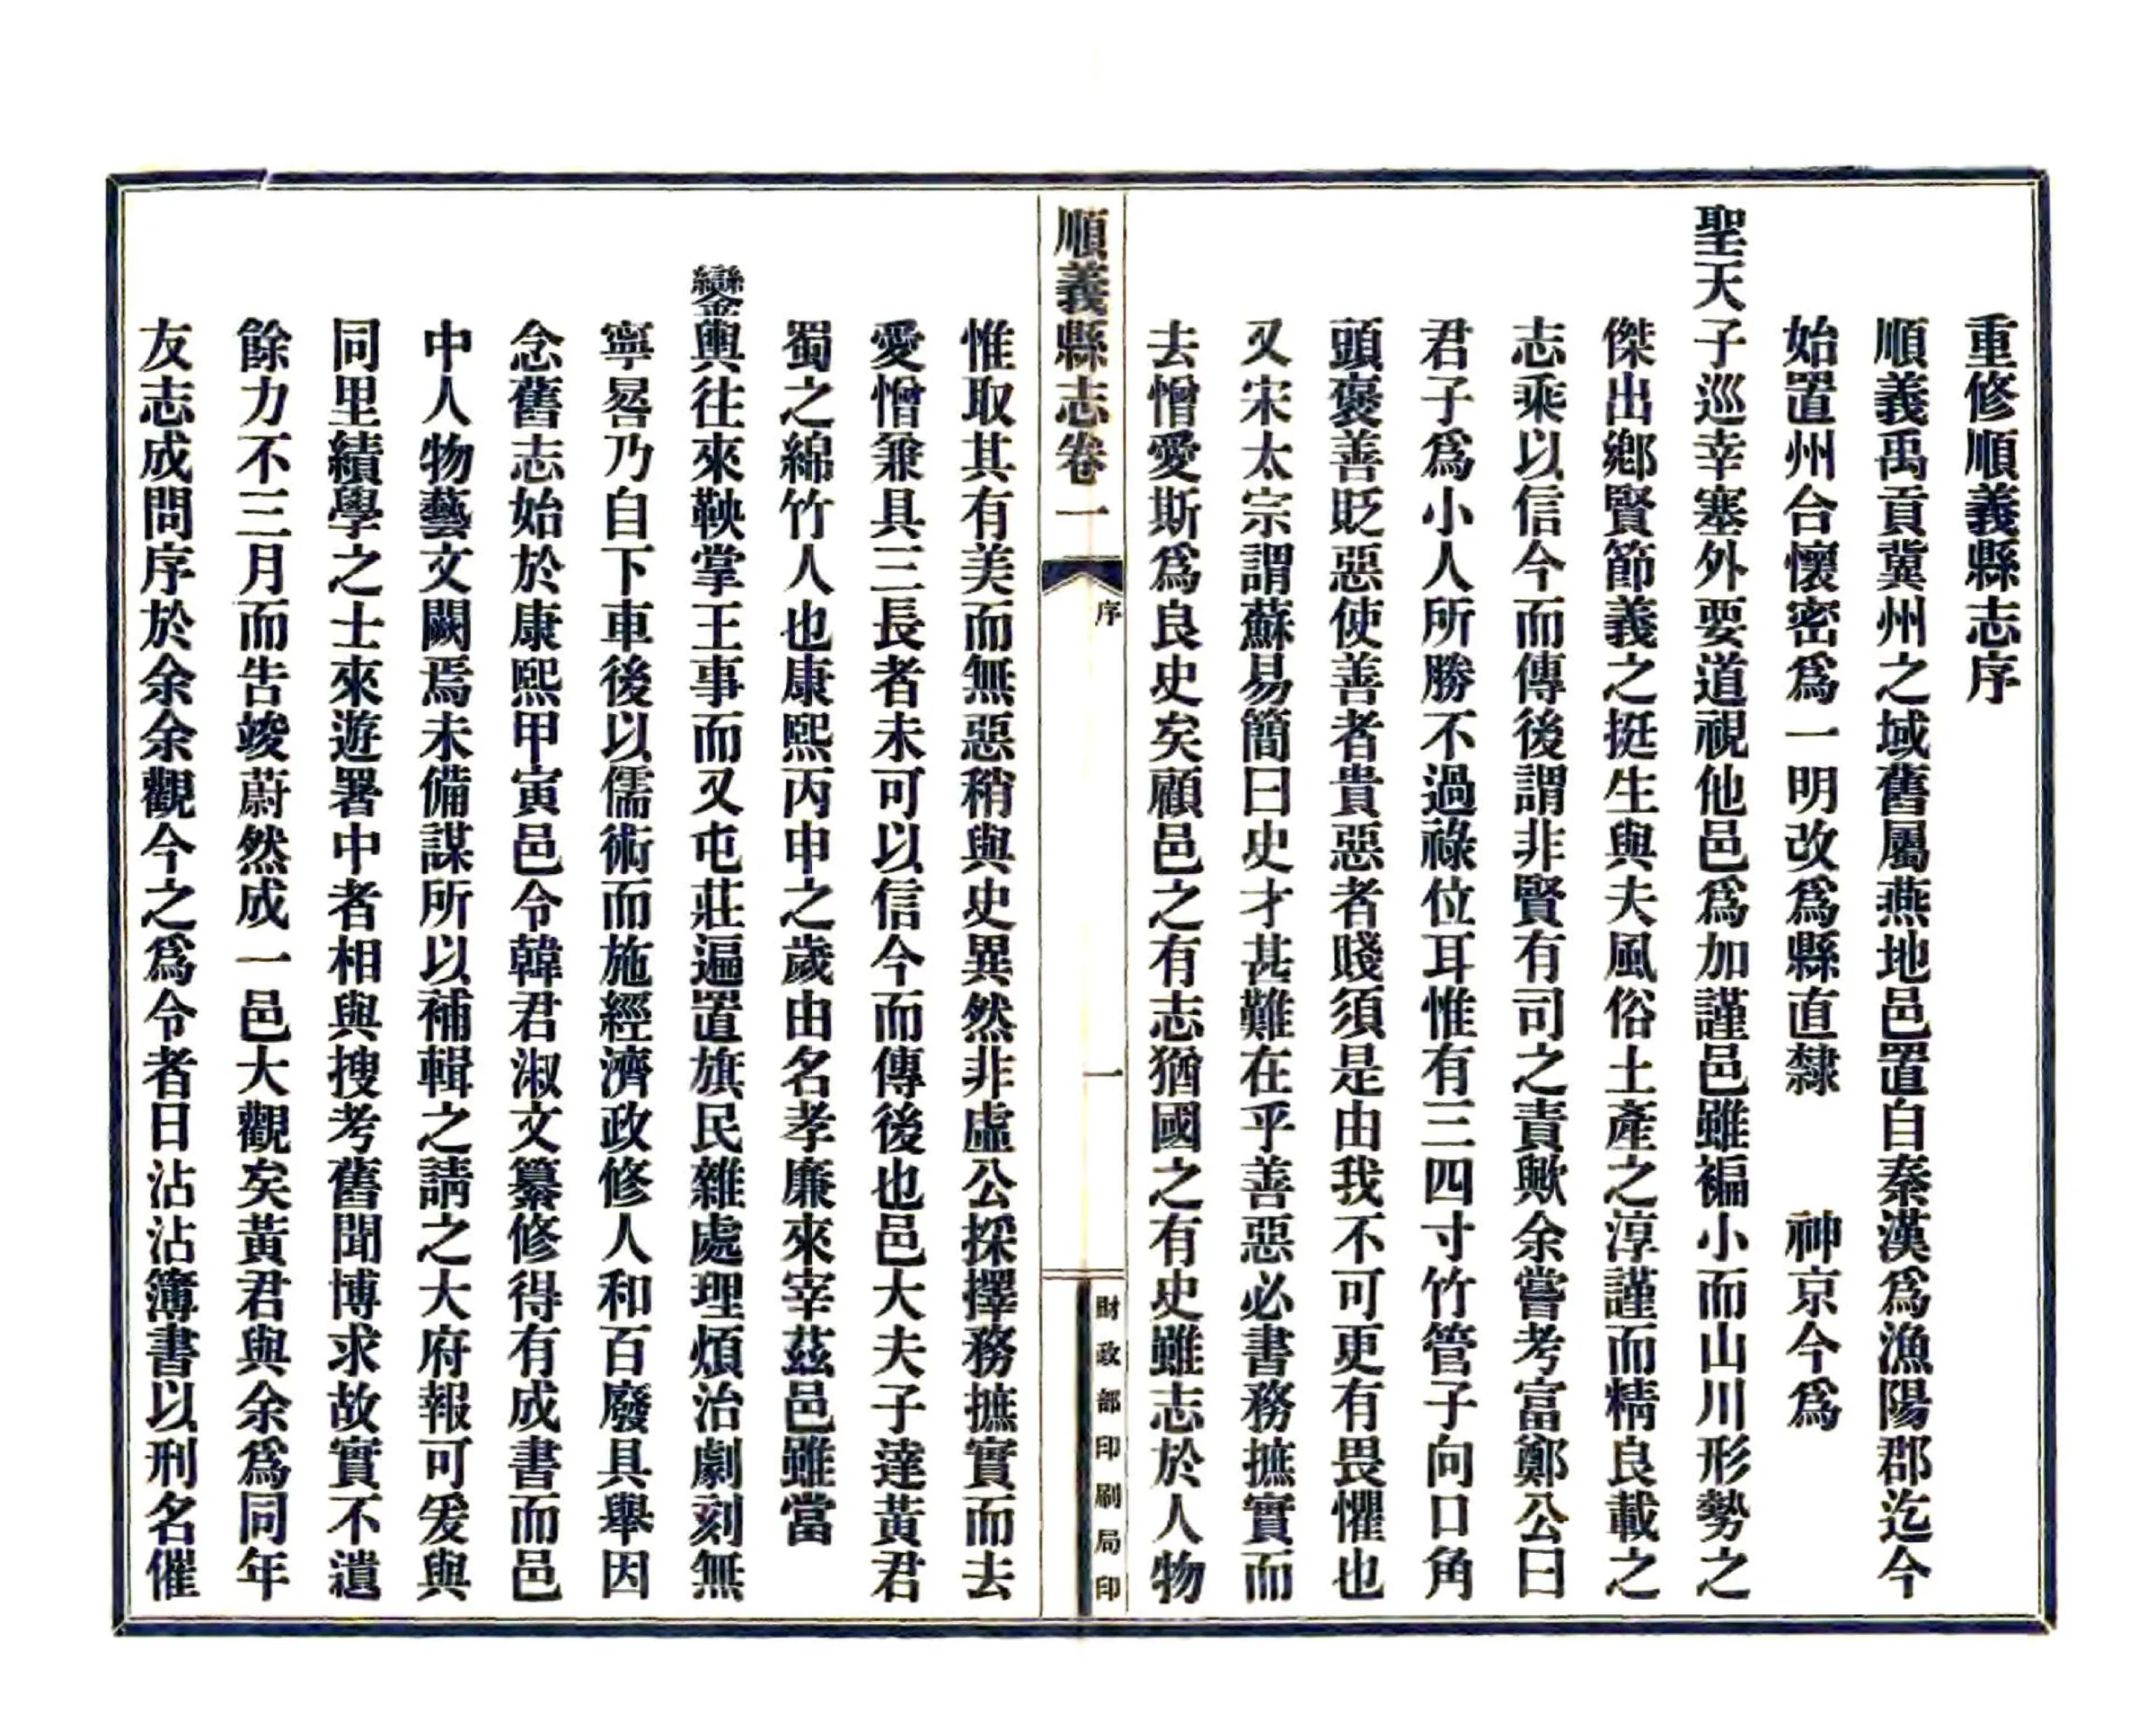 重修順義縣志序
順義禹貢冀州之域舊屬燕地邑置自秦漢爲漁陽郡迄今
始置州合懷密爲一明改爲縣直隸　神京今爲
聖天子巡幸塞外要道視他邑爲加謹邑雖褊小而山川形勢之
傑出鄉賢節義之挺生與夫風俗土產之淳謹而精良載之
志乘以信今而傳後謂非賢有司之責歟余嘗考富鄭公曰
君子爲小人所勝不過祿位耳惟有三四寸竹管子向口角
頭褒善貶惡使善者貴惡者賤須是由我不可更有畏懼也
又宋太宗謂蘇易簡曰史才甚難在乎善惡必書務摭實而
去憎愛斯爲良史矣顧邑之有志猶國之有史雖志於人物
順義縣志卷一
序
一
財政部印刷局印
惟取其有美而無惡稍與史異然非虛公採擇務摭實而去
愛憎兼具三長者未可以信今而傳後也邑大夫子達黃君
蜀之綿竹人也康熙丙申之歲由名孝廉來宰茲邑雖當
鑾輿往來鞅掌王事而又屯莊逼置旗民雜處理煩治劇刻無
寧晷乃自下車後以儒術而施經濟政修人和百廢具舉因
念舊志始於康熙甲寅邑令韓君淑文纂修得有成書而邑
中人物藝文闕焉未備謀所以補輯之請之大府報可爰與
同里績學之士來遊署中者相與搜考舊聞博求故實不遺
餘力不三月而告竣蔚然成一邑大觀矣黃君與余爲同年
友志成問序於余余觀今之爲令者日沾沾簿書以刑名催